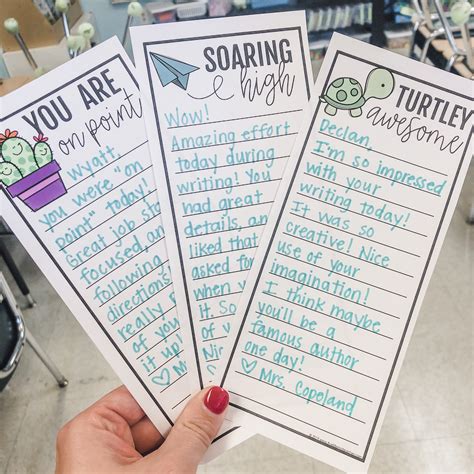 YOU ARE
on point
Wyatt,
you were "on
point" today!
Great job
focused,
following
directions
really
of you
it up!
♡ Mrs
SOARING
& high
Wow!
Amazing effort
today during
writing! You
had great
details,
liked that
asked for
when
it. So
of
TURTLEY
awesome
Declan,
I'm so impressed
with your
writing today!
It was so
creative! Nice
use of your
imagination!
I think maybe
you'll be a
famous author
one day!
♡ Mrs. Copeland